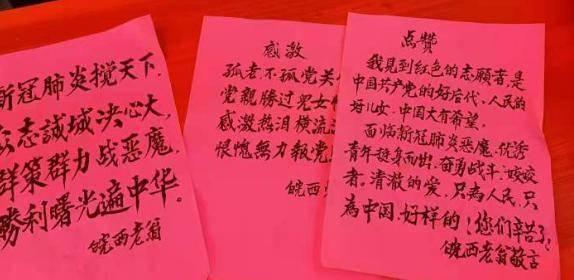 新冠肺炎搅天下,
众志誠城决心大,
群策群力战恶魔,
勝利曙光遍中华。
皖西老翁
感激
孤老不孤党关
党親勝过兒女
感激热泪横流
恨愧無力報党
皖西
点赞
我見到红色的志願者,是
中国共产党的好后代,人民的
好儿女,中国大有希望。
面临新冠肺炎恶魔,优诱
青年挺身而出,奋勇战斗,皎皎
者。清澈的爱,只为人民,只
為中国,好样的!您们辛苦了!
皖西老翁敬言